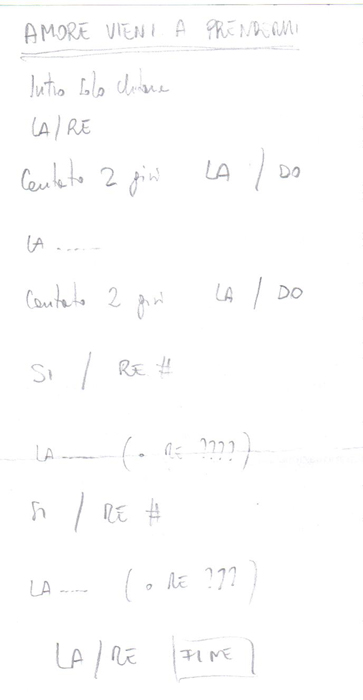 AMORE VIENI A PRENDERMI
Intro Solo chitarre
LA/RE
Cantato 2 giri LA / DO
LA ......
Cantato 2 giri LA / DO
SI / RE #
LA ...... (o RE ????)
SI / RE #
LA ..... (o RE ???)
LA/RE FINE